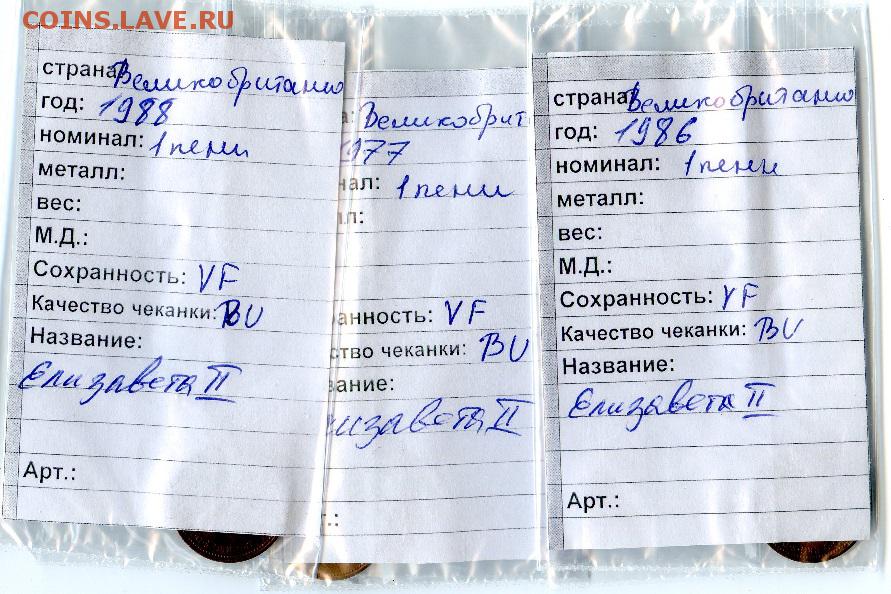 COINS.LAVE.RU
страна: Великобритания
год: 1988
номинал: 1 пени
металл:
вес:
М.Д.:
Сохранность: VF
Качество чеканки: BU
Название:
Елизавета II
Арт.:
а: Великобрит
1977
нал: 1 пени
лл:
ранность: VF
ство чеканки: BU
вание:
лизавета II
т.:
страна: Великобритания
год: 1986
номинал: 1 пени
металл:
вес:
М.Д.:
Сохранность: VF
Качество чеканки: BU
Название:
Елизавета II
Арт.: